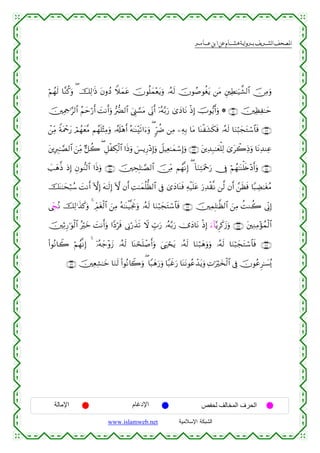 المصحف الشريف برواية هشام عن ابن عامر
وَمِنَ ٱلشَّيَٰطِينِ مَن يَغُوصُونَ لَهُۥ وَيَعْمَلُونَ عَمَلًا دُونَ ذَٰلِكَ ۖ وَكُنَّا لَهُمْ
حَٰفِظِينَ ۞ وَأَيُّوبَ إِذْ نَادَىٰ رَبَّهُۥٓ أَنِّى مَسَّنِىَ ٱلضُّرُّ وَأَنتَ أَرْحَمُ ٱلرَّٰحِمِينَ
فَٱسْتَجَبْنَا لَهُۥ فَكَشَفْنَا مَا بِهِۦ مِن ضُرٍّ ۖ وَءَاتَيْنَٰهُ أَهْلَهُۥ وَمِثْلَهُم مَّعَهُمْ رَحْمَةً مِّنْ
عِندِنَا وَذِكْرَىٰ لِلْعَٰبِدِينَ وَإِسْمَٰعِيلَ وَإِدْرِيسَ وَذَا ٱلْكِفْلِ ۖ كُلٌّ مِّنَ ٱلصَّٰبِرِينَ
وَأَدْخَلْنَٰهُمْ فِى رَحْمَتِنَآ ۖ إِنَّهُم مِّنَ ٱلصَّٰلِحِينَ وَذَا ٱلنُّونِ إِذ ذَّهَبَ
مُغَٰضِبًا فَظَنَّ أَن لَّن نَّقْدِرَ عَلَيْهِ فَنَادَىٰ فِى ٱلظُّلُمَٰتِ أَن لَّآ إِلَٰهَ إِلَّآ أَنتَ سُبْحَٰنَكَ
إِنِّى كُنتُ مِنَ ٱلظَّٰلِمِينَ فَٱسْتَجَبْنَا لَهُۥ وَنَجَّيْنَٰهُ مِنَ ٱلْغَمِّ ۚ وَكَذَٰلِكَ نُجِّى
ٱلْمُؤْمِنِينَ وَزَكَرِيَّآءَ إِذْ نَادَىٰ رَبَّهُۥ رَبِّ لَا تَذَرْنِى فَرْدًا وَأَنتَ خَيْرُ ٱلْوَٰرِثِينَ
فَٱسْتَجَبْنَا لَهُۥ وَوَهَبْنَا لَهُۥ يَحْيَىٰ وَأَصْلَحْنَا لَهُۥ زَوْجَهُۥٓ ۚ إِنَّهُمْ كَانُوا۟
يُسَٰرِعُونَ فِى ٱلْخَيْرَٰتِ وَيَدْعُونَنَا رَغَبًا وَرَهَبًا ۖ وَكَانُوا۟ لَنَا خَٰشِعِينَ
الحرف المخالف لحفص الإدغام الإمالة
الشبكة الإسلامية www.islamweb.net